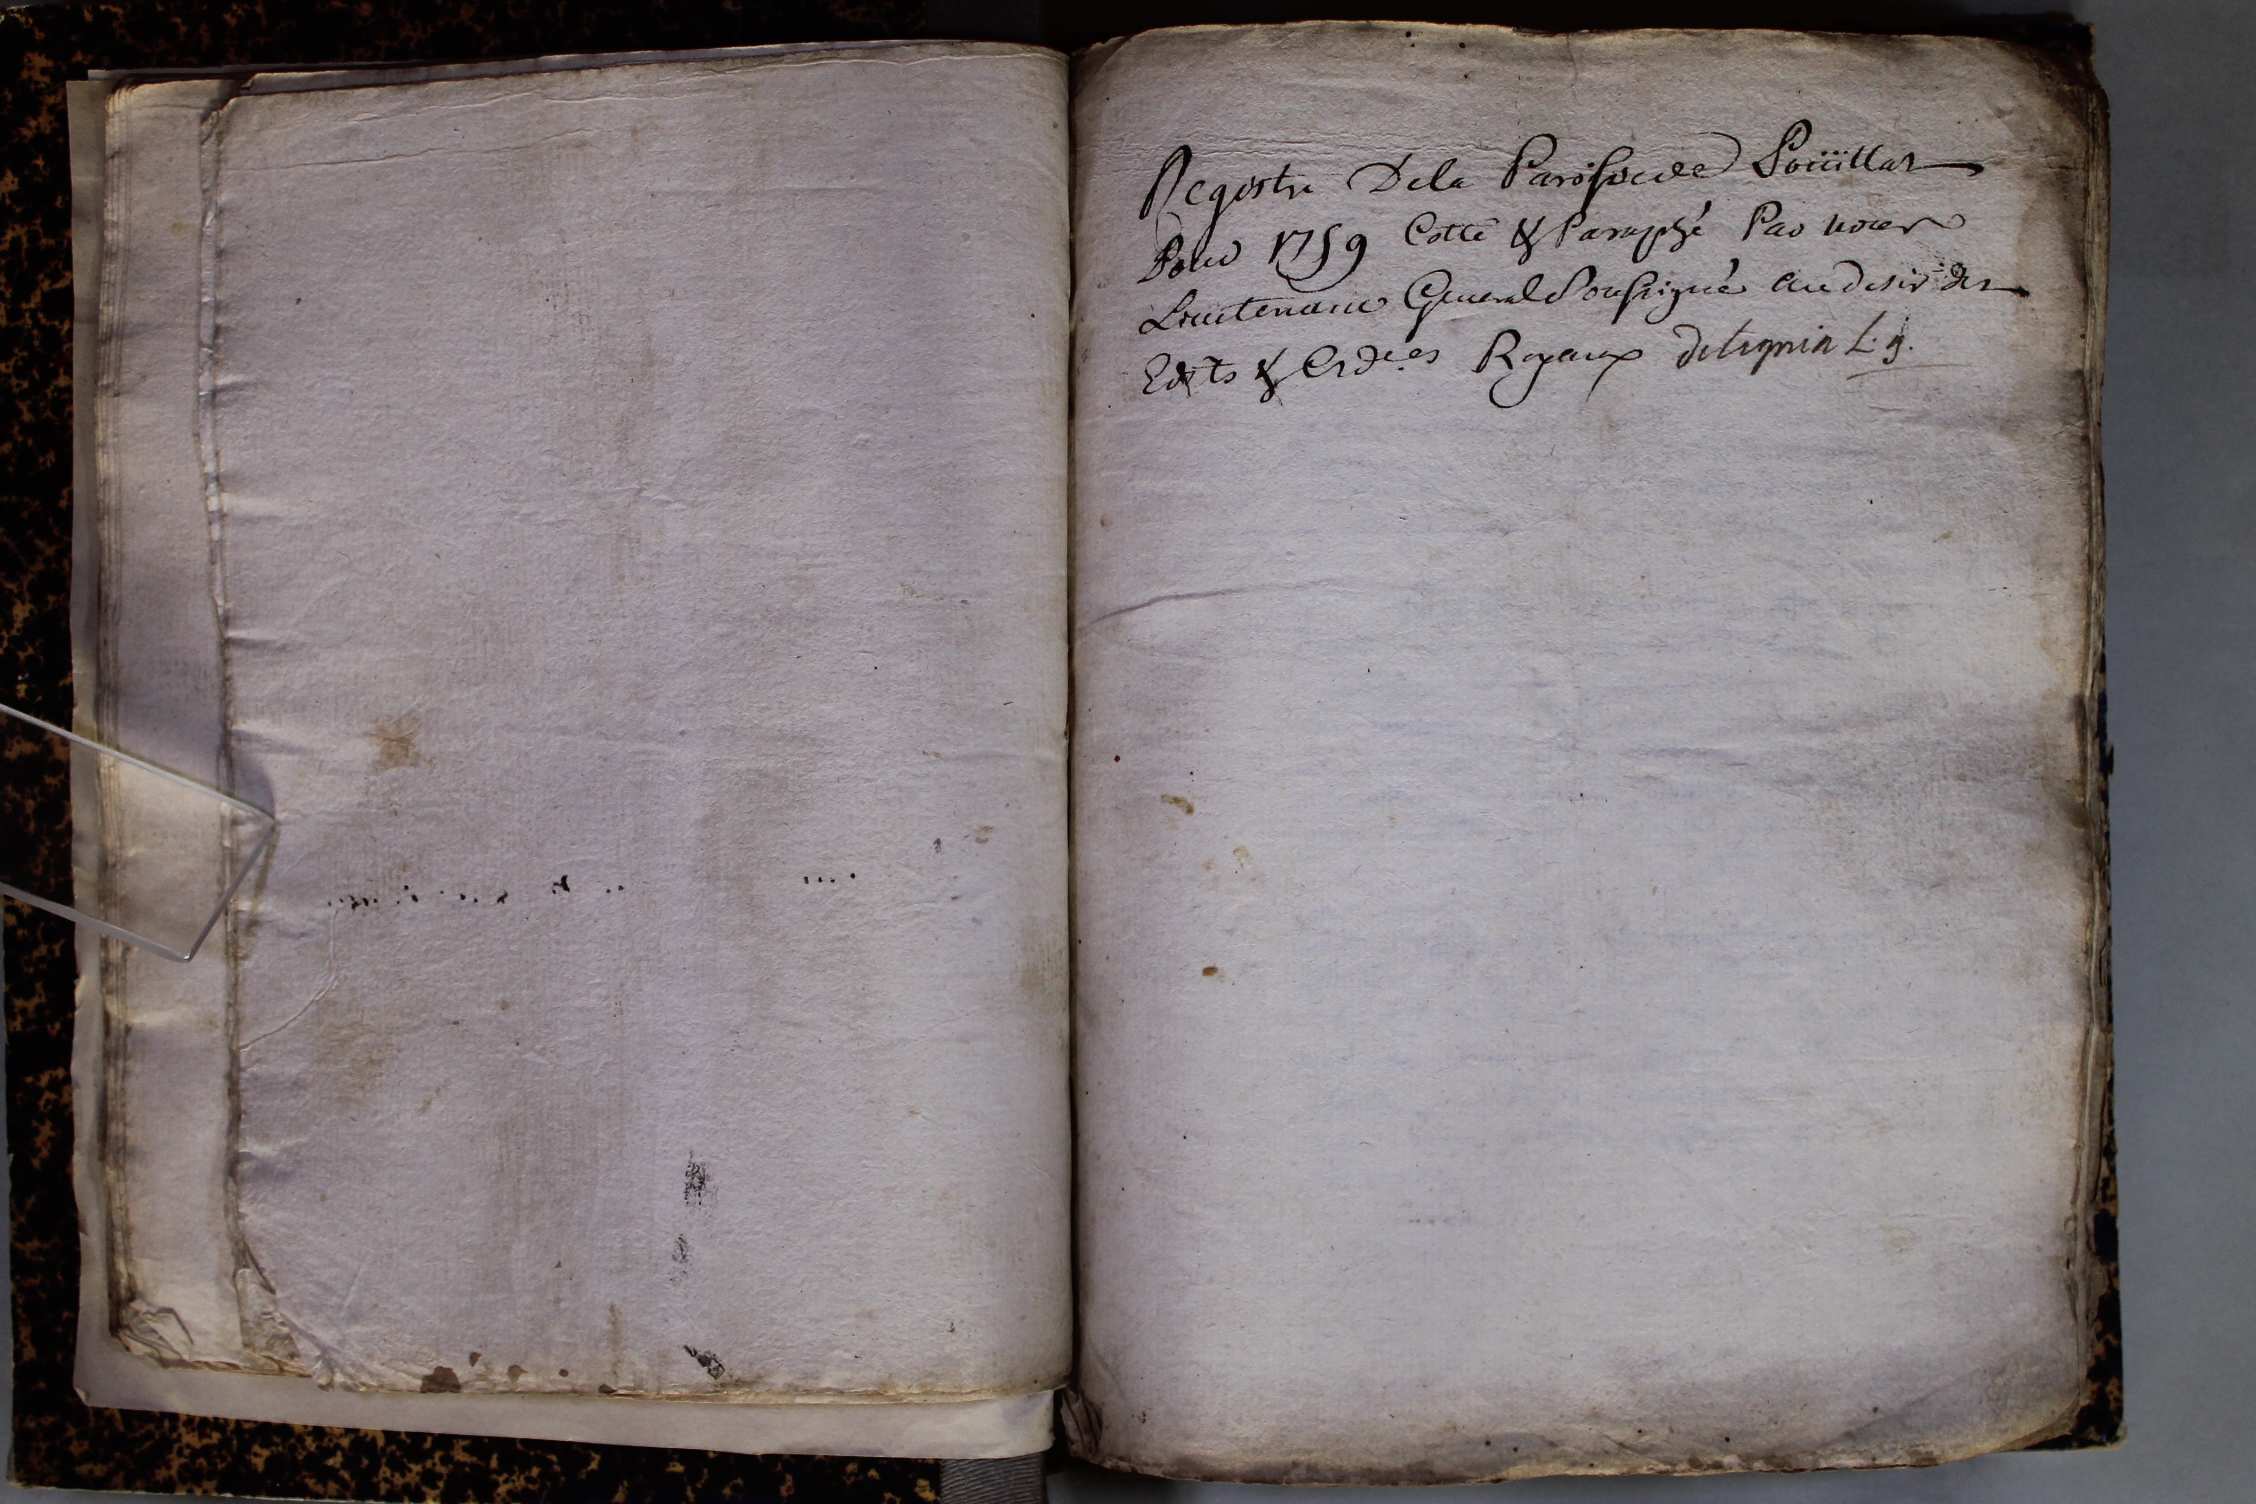 Registre Dela Paroisse de Poüillat
Pour 1759 Cotté & Paraphé Par nous
Lieutenant General Soussigné au desir des
Edits & Ord.ces Royaux L. g.